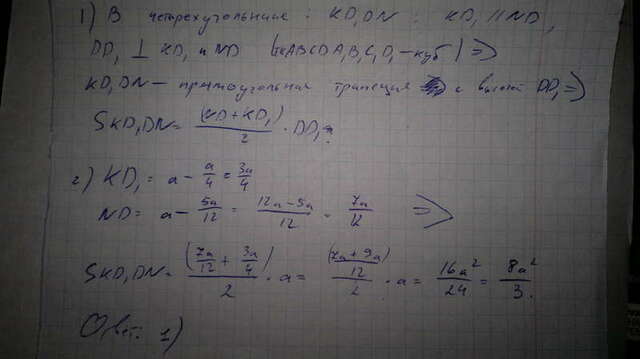 1) В четырехугольнике : KD₁DN : KD₁ || ND,
DD₁ ⊥ KD₁ и ND (т.к ABCDA₁B₁C₁D₁ – куб) =>
KD₁DN – прямоугольная трапеция с высотой DD₁ =>
SKD₁DN = (ND + KD₁)/2 · DD₁
2) KD₁ = a - a/4 = 3a/4
ND = a - 5a/12 = (12a - 5a)/12 = 7a/12 =>
SKD₁DN = (7a/12 + 3a/4)/2 · a = ((7a + 9a)/12)/2 · a = 16a²/24 = 8a²/3.
Ответ. 1)